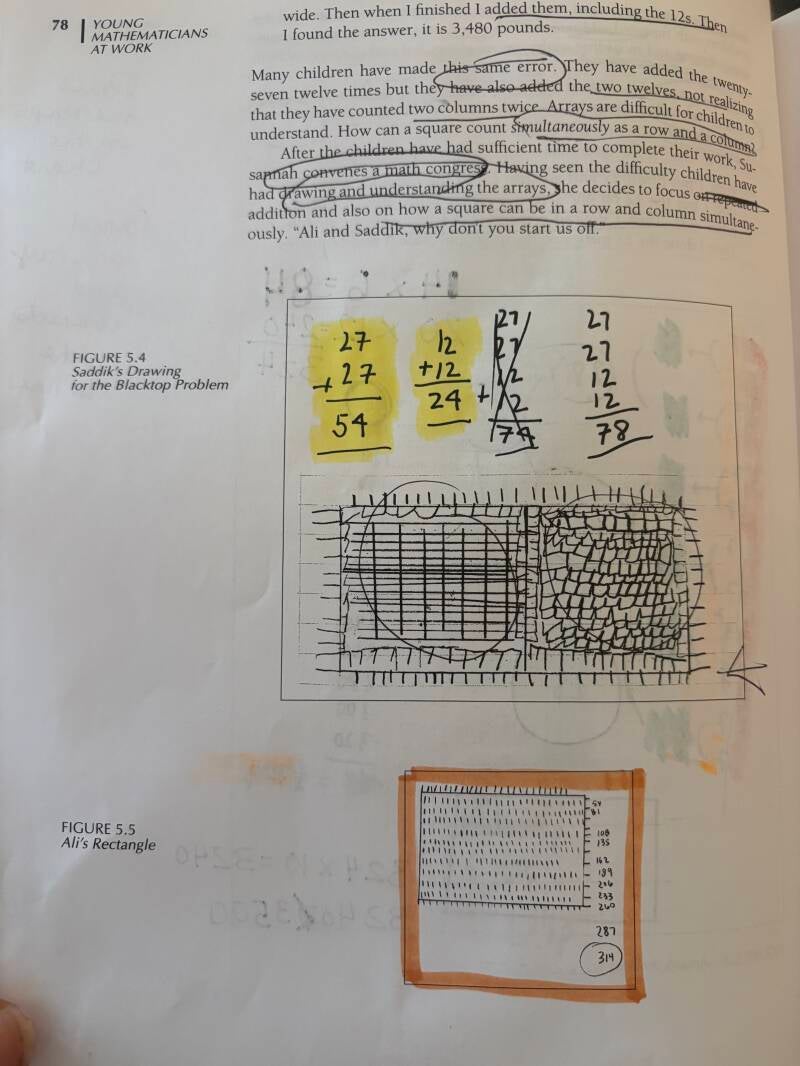 78
YOUNG
MATHEMATICIANS
AT WORK
wide. Then when I finished I added them, including the 12s. Then
I found the answer, it is 3,480 pounds.
Many children have made this same error. They have added the twenty-
seven twelve times but they have also added the two twelves, not realizing
that they have counted two columns twice. Arrays are difficult for children to
understand. How can a square count simultaneously as a row and a column?
After the children have had sufficient time to complete their work, Su-
sannah convenes a math congress. Having seen the difficulty children have
had drawing and understanding the arrays, she decides to focus on repeated
addition and also on how a square can be in a row and column simultane-
ously. “Ali and Saddik, why don’t you start us off.”
FIGURE 5.4
Saddik’s Drawing
for the Blacktop Problem
27
+27
54
12
+12
24
27
27
12
+12
74
27
27
12
12
78
FIGURE 5.5
Ali’s Rectangle
54
81
108
135
162
189
206
233
260
287
314